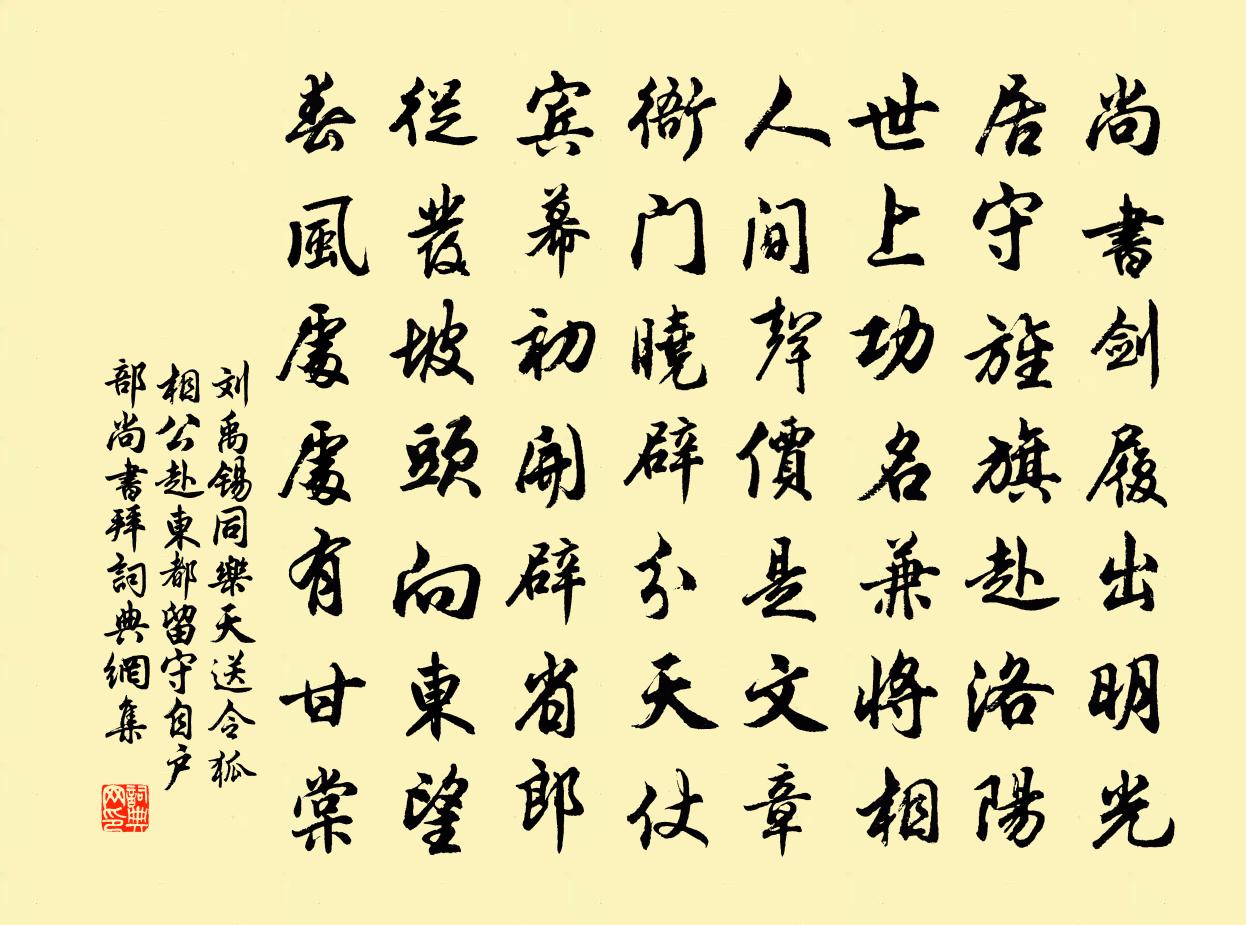 尚書劍履出明光
居守旌旗赴洛陽
世上功名兼將相
人間聲價是文章
衙門曉辟分天仗
賓幕初開辟省郎
從發坡頭向東望
春風處處有甘棠
刘禹锡同樂天送令狐
相公赴東都留守自户
部尚書拜詞典網集
詞典
网印